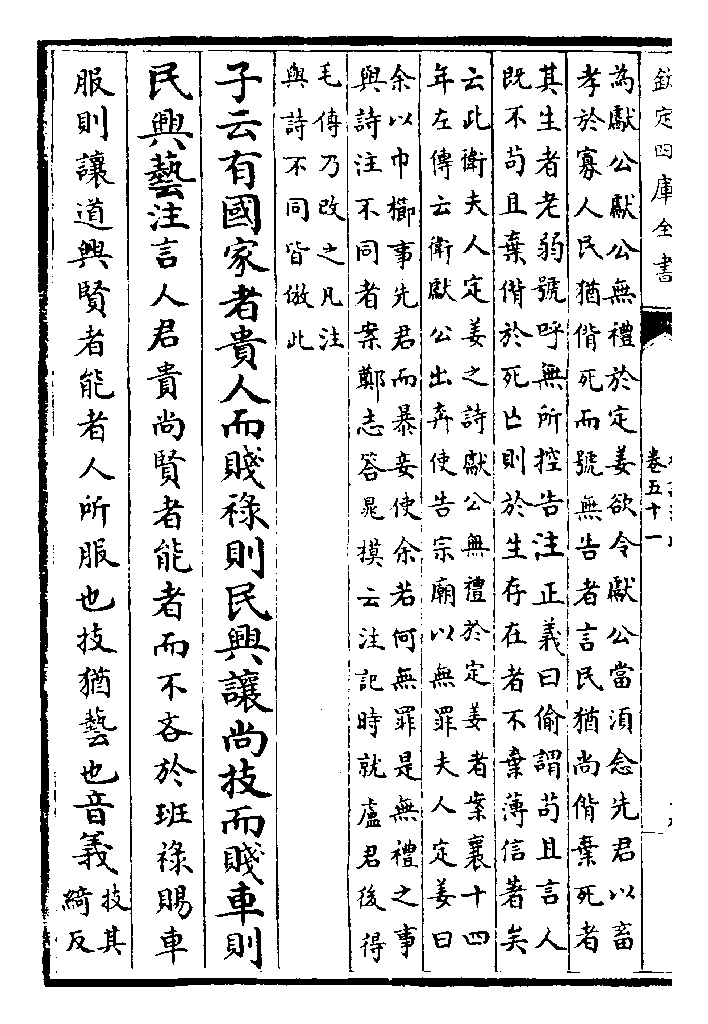 欽定四庫全書
卷五十一
為獻公獻公無禮於定姜欲令獻公當須念先君以畜
孝於寡人民猶偝死而號無告者言民猶尚偝棄死者
其生者老弱號呼無所控告注正義曰偷謂苟且言人
既不苟且棄偝於死亡則於生存在者不棄薄信著矣
云此衛夫人定姜之詩獻公無禮於定姜者案襄十四
年左傳云衛獻公出奔使告宗廟以無罪夫人定姜曰
余以巾櫛事先君而暴妾使余若何無罪是無禮之事
與詩注不同者案鄭志答炅模云注記時就盧君後得
毛傳乃改之凡注
與詩不同皆倣此
子云有國家者貴人而賤祿則民興讓尚技而賤車則
民興藝注言人君貴尚賢者能者而不吝於班祿賜車
服則讓道興賢者能者人所服也技猶藝也音義技其
綺反